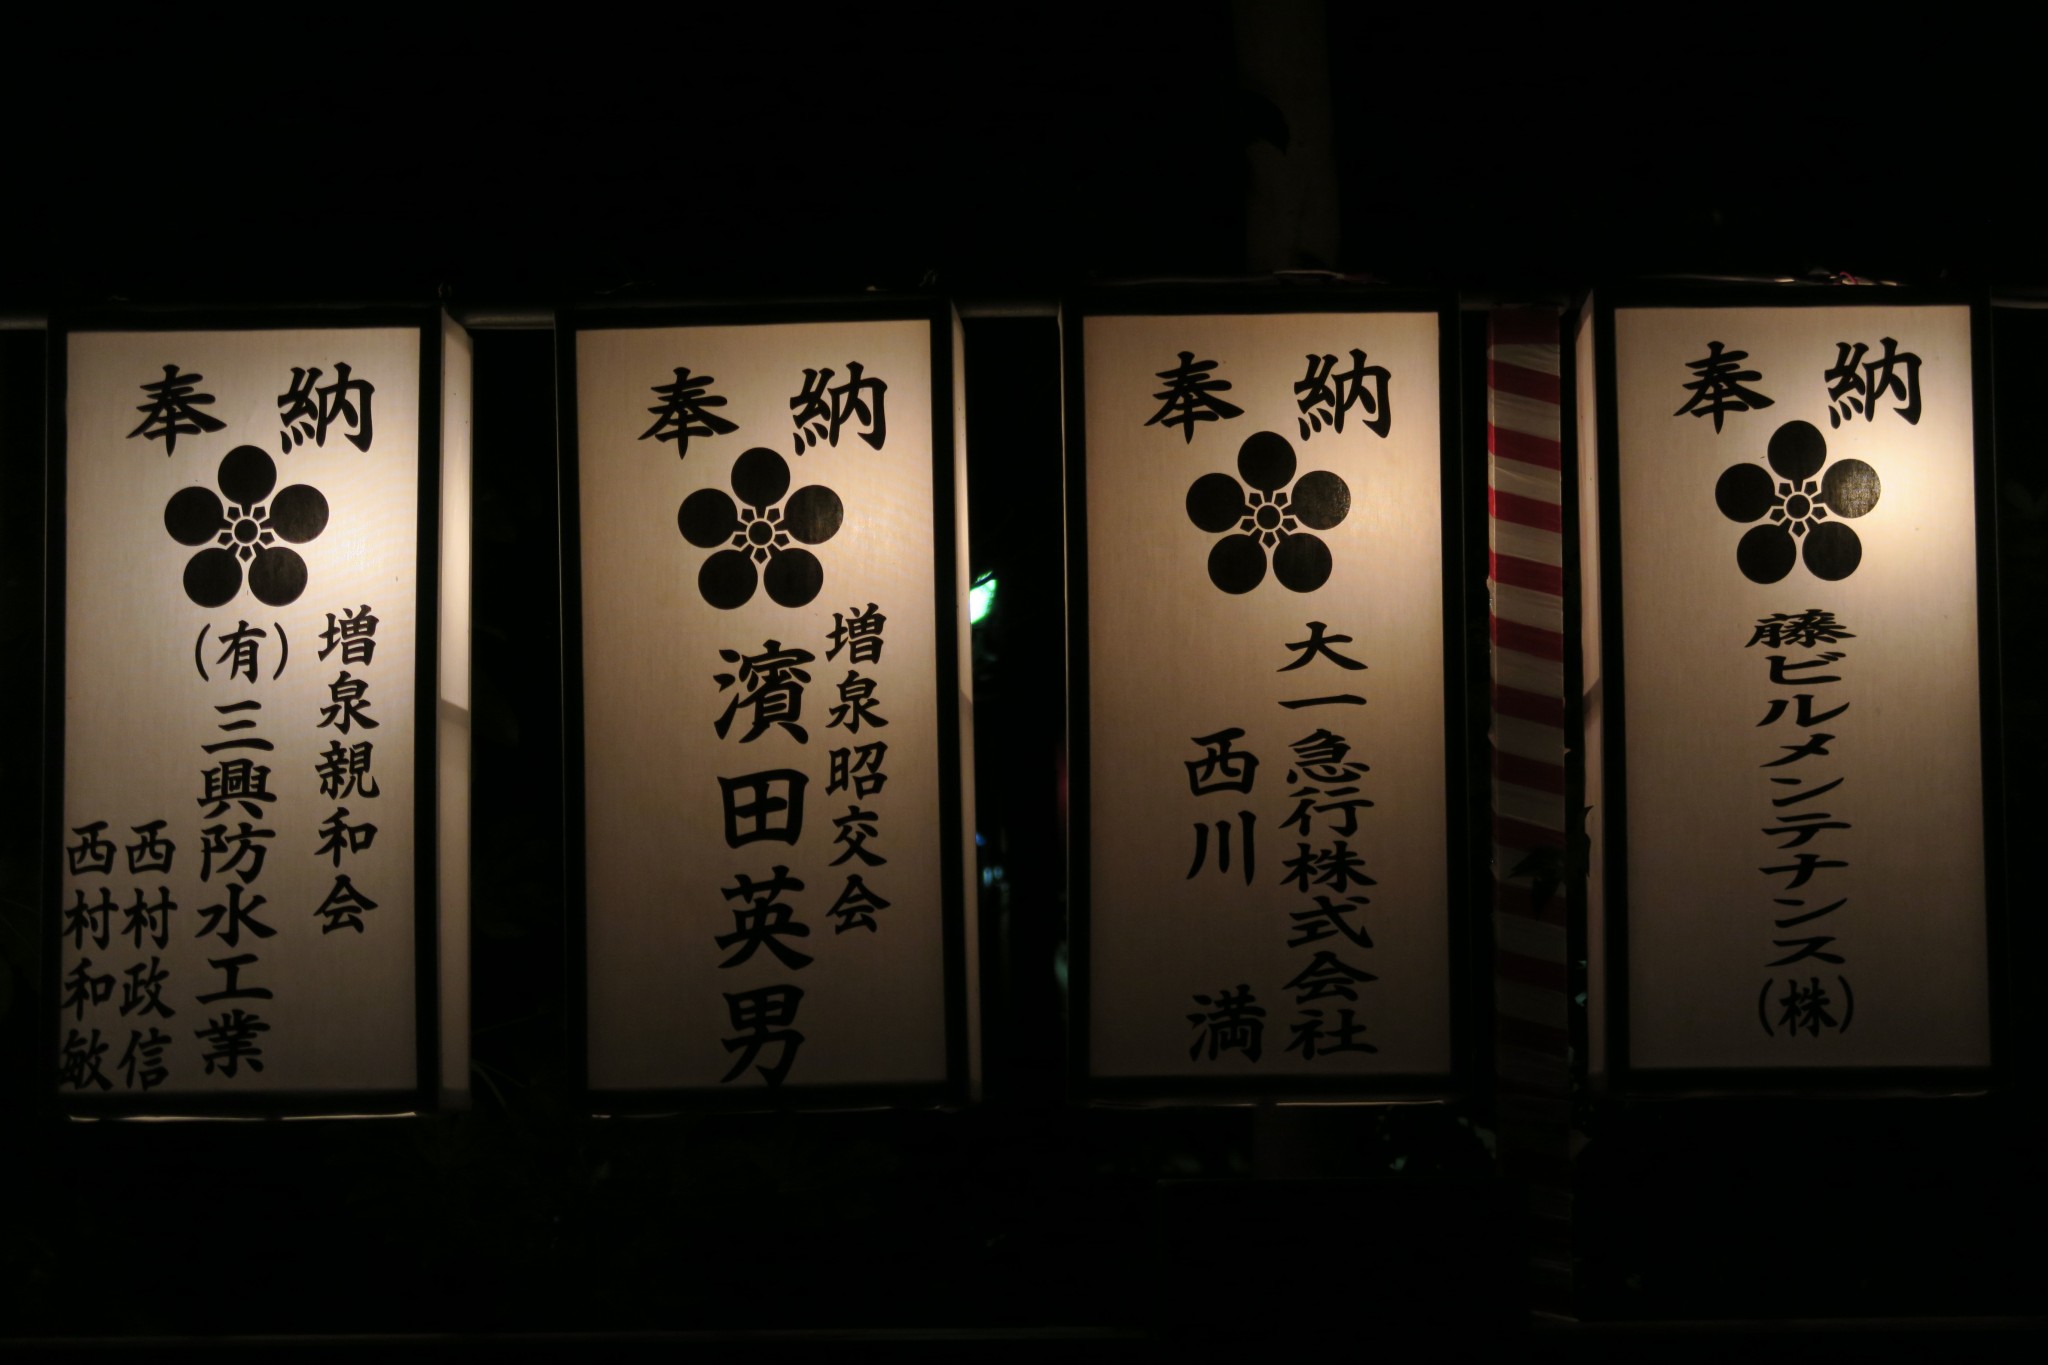 奉納
増泉親和会
(有)三興防水工業
西村政信
西村和敏
奉納
増泉昭交会
濱田英男
奉納
大一急行株式会社
西川 満
奉納
藤ビルメンテナンス(株)